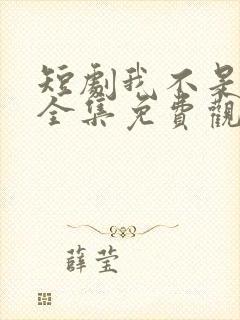 短劇我不是
全集免費觀
薛莹